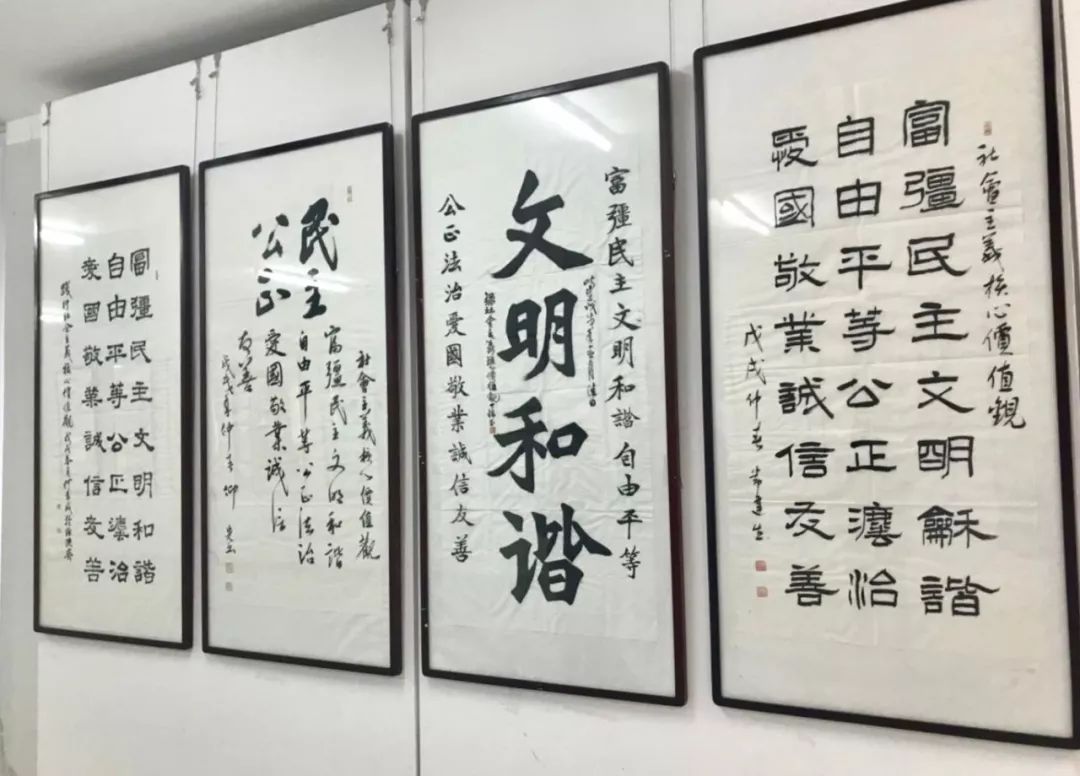 社會主義核心價值觀
富彊民主文明龢諧
自由平等公正灋治
愛國敬業誠信友善
戊戌仲春
富彊民主文明和諧自由平等
文明和谐
公正法治愛國敬業誠信友善
民主
公正
社會主義核心價值觀
富彊民主文明和諧
自由平等公正法治
愛國敬業誠信
友善
戊戌年仲春
富彊民主文明和諧
自由平等公正灋治
愛國敬業誠信友善
踐行社會主義核心價值觀戊戌